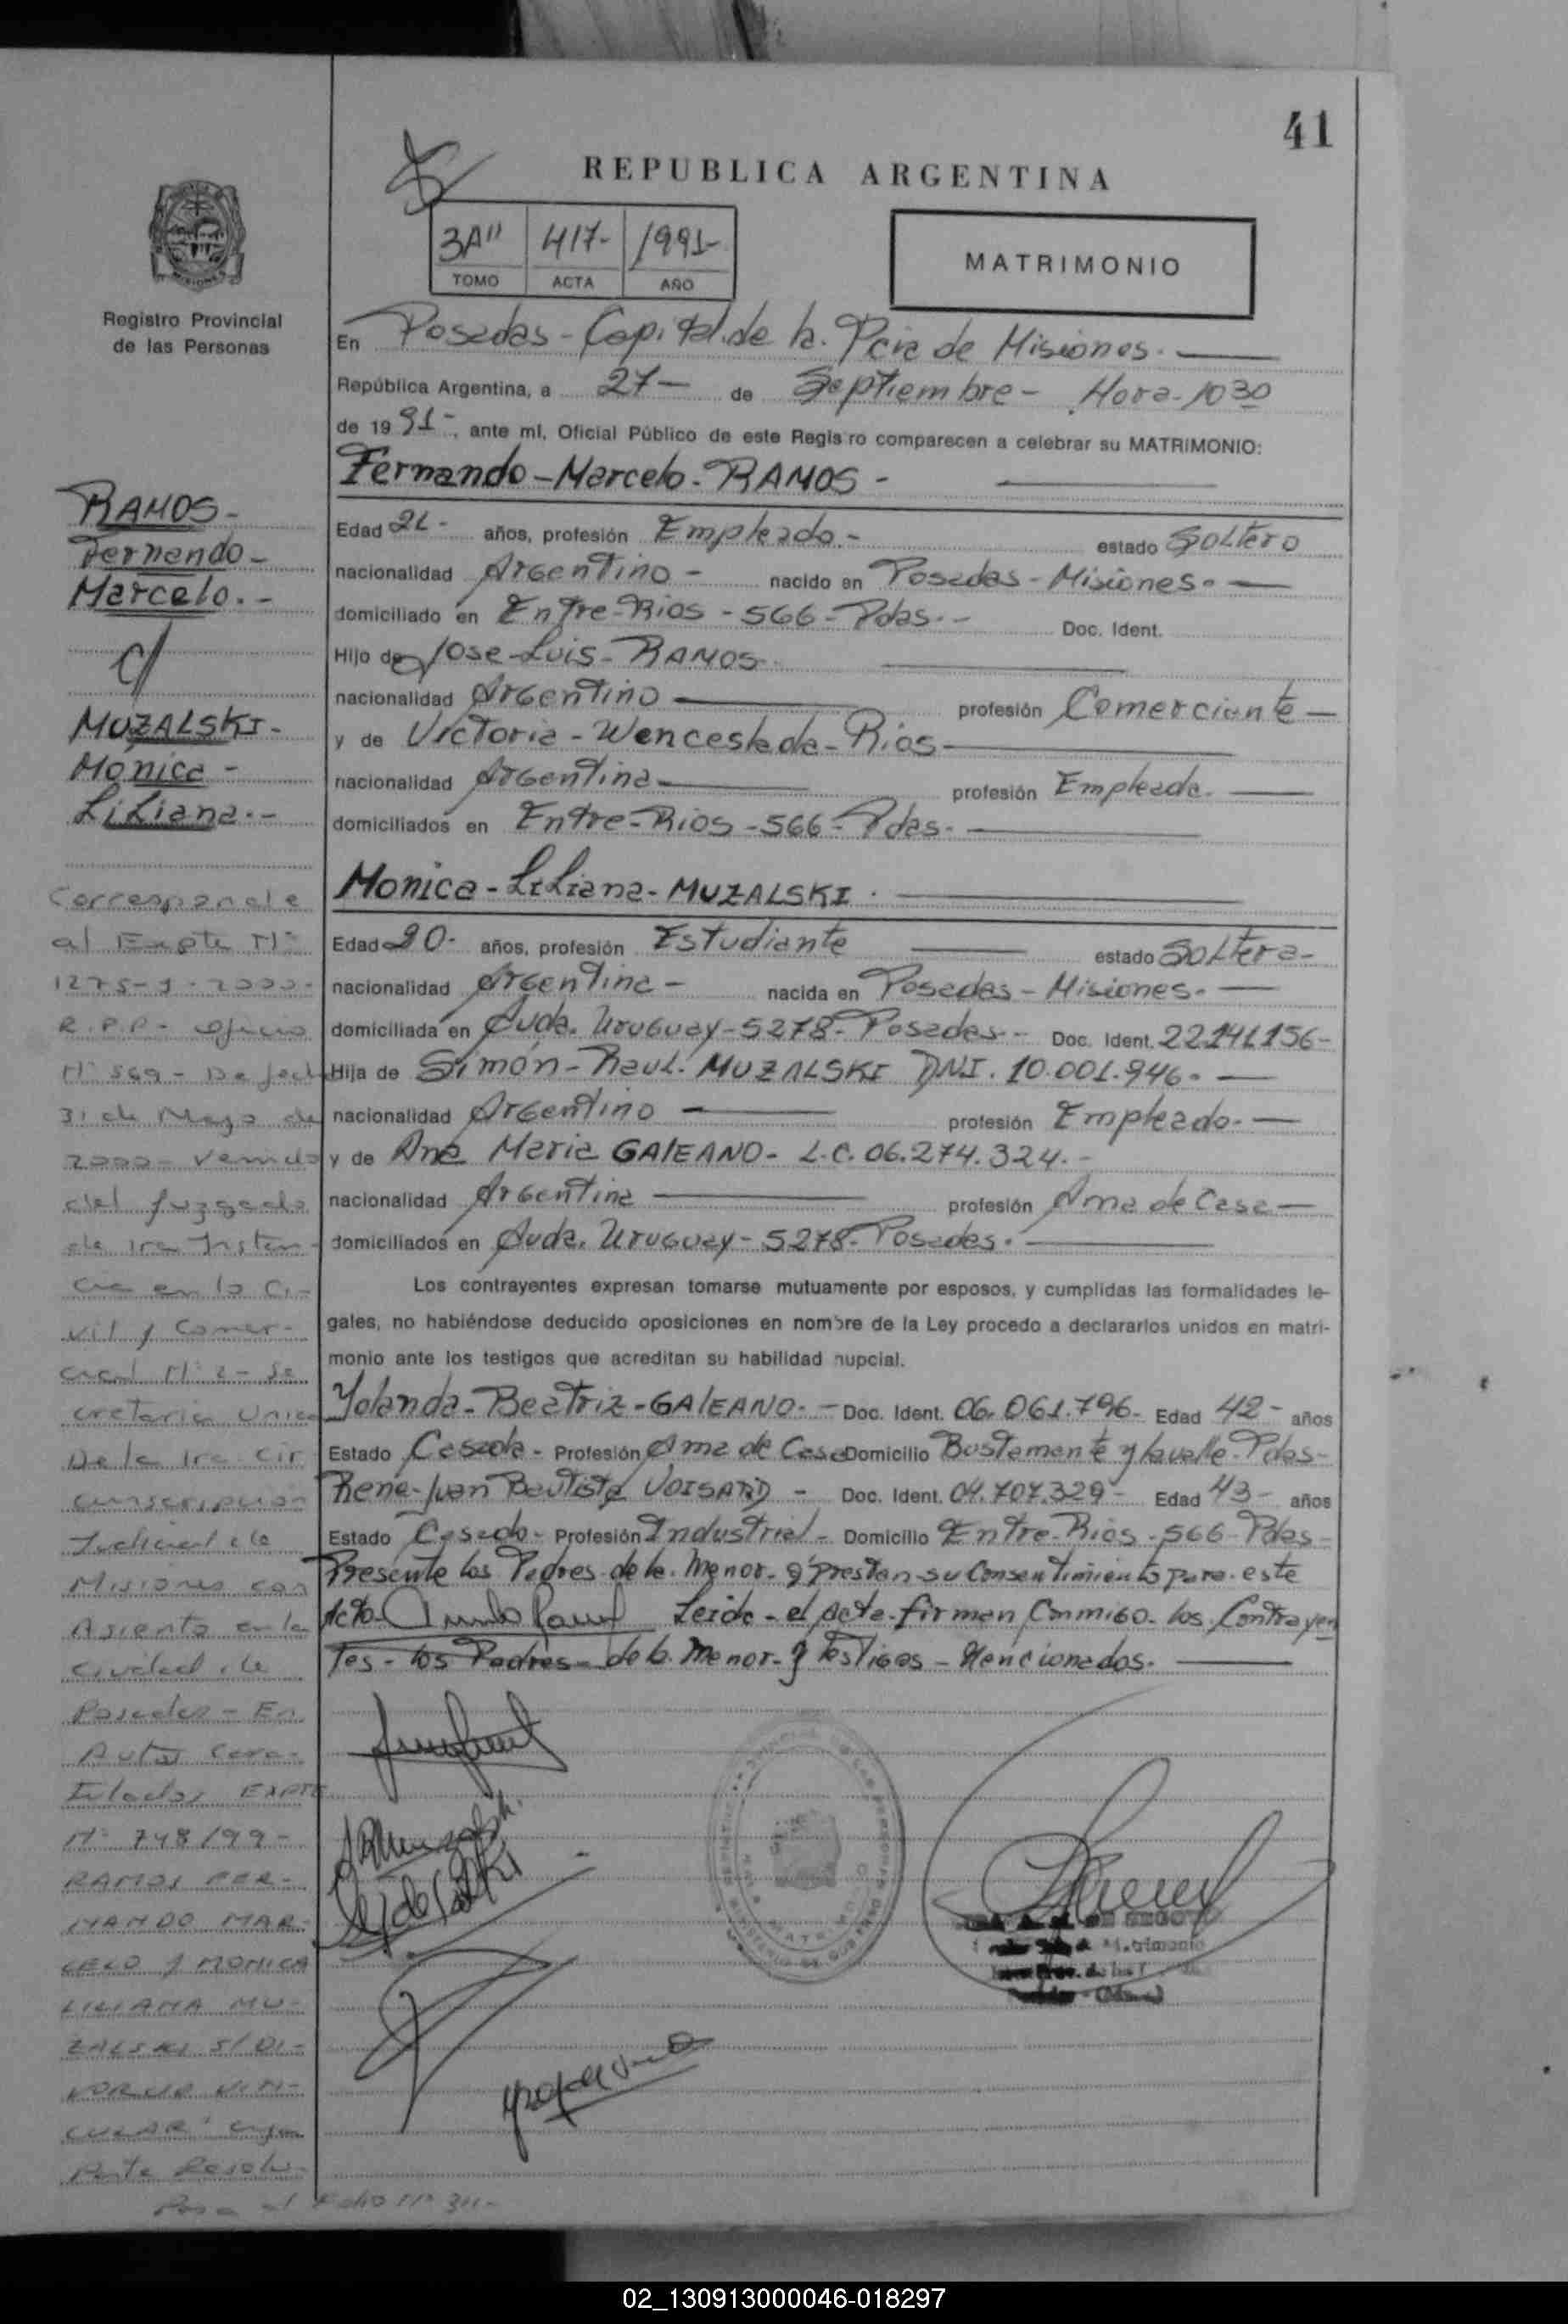 41
REPUBLICA ARGENTINA
3A" 417- 1991-
TOMO ACTA AÑO
MATRIMONIO
Registro Provincial
de las Personas
En Posadas - Capital de la Pcia de Misiones.
República Argentina, a 27 - de Septiembre - Hora - 10 30
de 19 91 -, ante mí, Oficial Público de este Registro comparecen a celebrar su MATRIMONIO:
Fernando - Marcelo - RAMOS -
Edad 21 - años, profesión Empleado. - estado Soltero
nacionalidad Argentino - nacido en Posadas - Misiones. -
domiciliado en Entre - Rios - 566 - Pdas. - Doc. Ident.
Hijo de Jose - Luis - RAMOS -
nacionalidad Argentino profesión Comerciante -
y de Victoria - Wenceslada - Rios -
nacionalidad Argentina profesión Empleada.
domiciliados en Entre - Rios - 566 - Pdas. -
Monica - Liliana - MUZALSKI.
Edad 20 - años, profesión Estudiante estado Soltera -
nacionalidad Argentina - nacida en Posadas - Misiones. -
domiciliada en Avda. Uruguay - 5278 - Posadas - Doc. Ident. 22.141.156 -
Hija de Simón - Raul. MUZALSKI DNI. 10.001.946. -
nacionalidad Argentino profesión Empleado. -
y de Ana Maria GALEANO - L.C. 06.274.324. -
nacionalidad Argentina profesión Ama de Casa -
domiciliados en Avda. Uruguay - 5278 - Posadas.
Los contrayentes expresan tomarse mutuamente por esposos, y cumplidas las formalidades le-
gales, no habiéndose deducido oposiciones en nombre de la Ley procedo a declararlos unidos en matri-
monio ante los testigos que acreditan su habilidad nupcial.
Yolanda - Beatriz - GALEANO. - Doc. Ident. 06.061.796 - Edad 42 - años
Estado Casada - Profesión Ama de Casa Domicilio Bustamante y Lavalle - Pdas -
Rene - Juan Bautista VOISARD - Doc. Ident. 04.707.329 - Edad 43 - años
Estado Casado - Profesión Industrial - Domicilio Entre - Rios - 566 - Pdas -
Presente los Padres de la Menor - q' prestan su Consentimiento para este
Acto Leida - el Acta - firman Conmigo - los Contrayen
tes - los Padres - de la Menor - y testigos - Mencionados.
RAMOS -
Fernando -
Marcelo. -
c/
MUZALSKI -
Monica -
Liliana. -
Corresponde
al Expte N°
1275-J-2000-
R.P.P. - Oficio
N° 569 - De fecha
31 de Mayo de
2000 - Venido
del Juzgado
de 1ra Instan-
cia en lo Ci-
vil y Comer-
cial N° 2 - Se
cretaria Unica
De la 1ra. Cir
cunscripcion
Judicial de
Misiones con
Asiento en la
Ciudad de
Posadas - En
Autos Cara-
tulados EXPTE
N° 748/99 -
RAMOS FER-
NANDO MAR-
CELO Y MONICA
LILIANA MU-
ZALSKI S/ DI-
VORCIO VIN-
CULAR" cuya
Parte Resolu-
Pasa al Folio N° 311 -
02_130913000046-018297